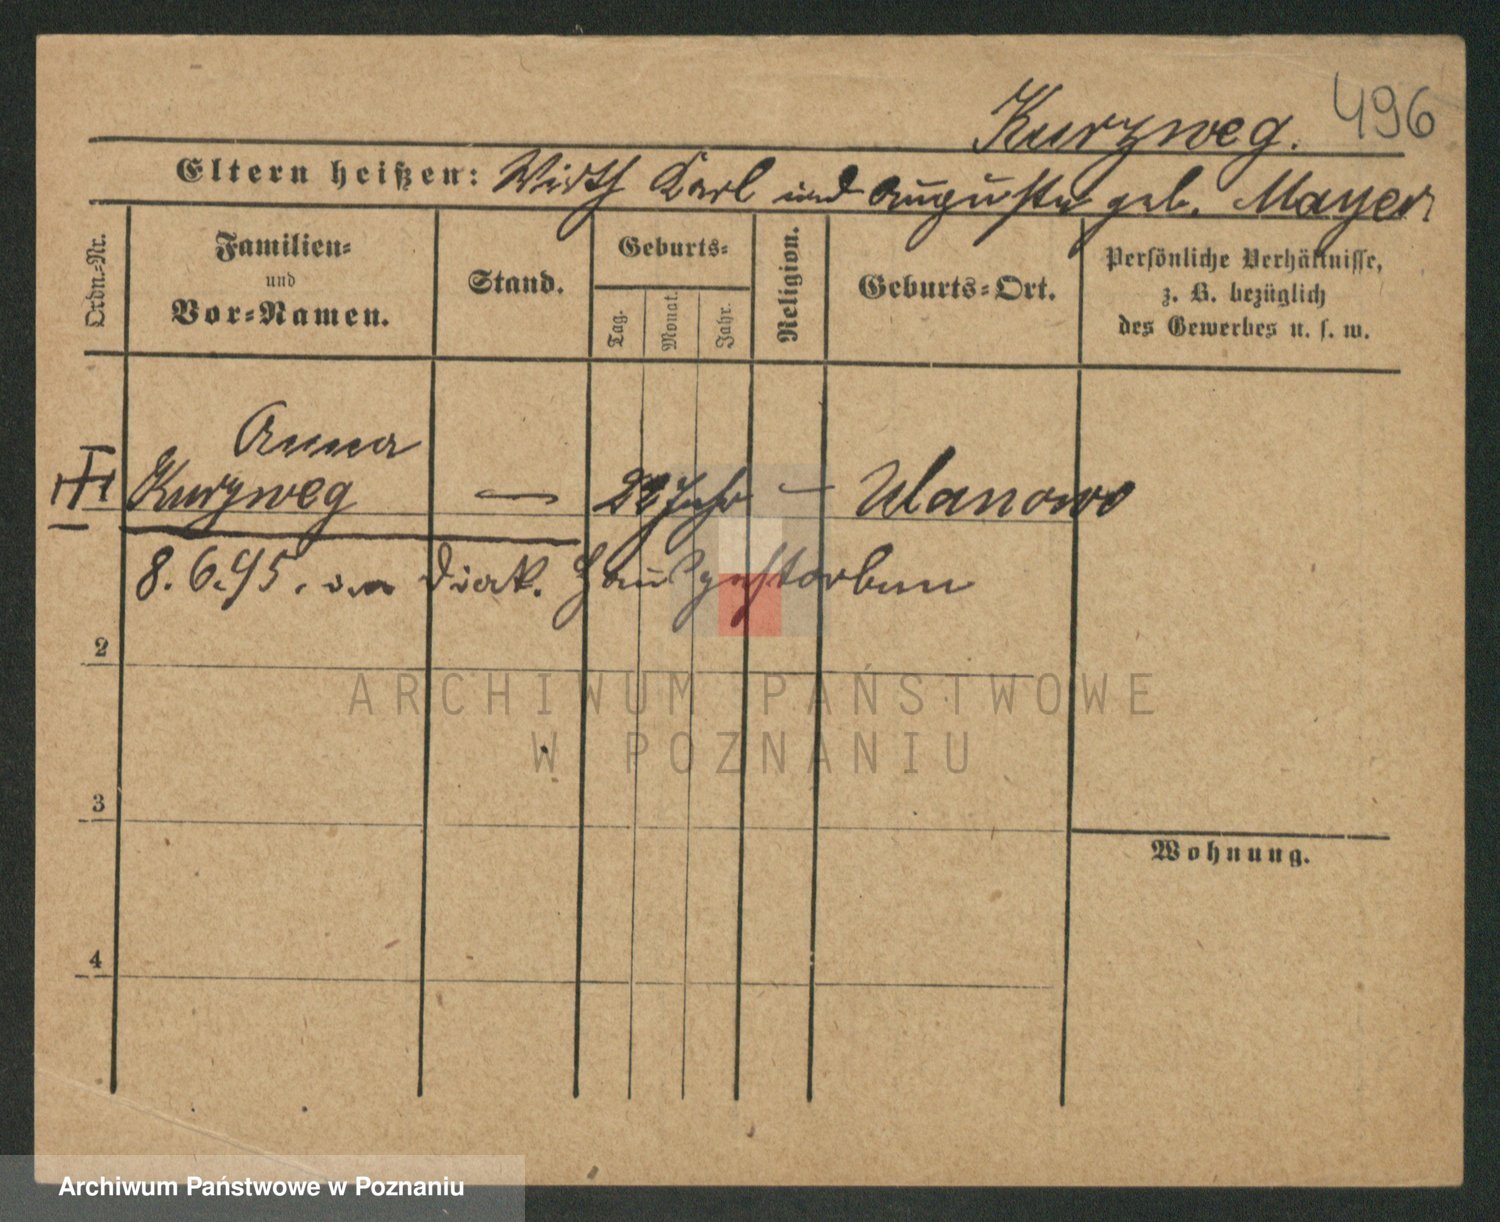 Kurzweg. 496
Eltern heißen: Wirth Karl und Auguste geb. Mayer
Ordn.-Nr.
Familien-
und
Vor-Namen.
Stand.
Geburts-
Tag.
Monat.
Jahr.
Religion.
Geburts-Ort.
Persönliche Verhältnisse,
z. B. bezüglich
des Gewerbes u. s. w.
Anna
Kurzweg — 22 Jahr — Ulanowo
8. 6. 95. im Diak. Haus gestorben
2
3
4
Wohnung.
ARCHIWUM PAŃSTWOWE
W POZNANIU
Archiwum Państwowe w Poznaniu